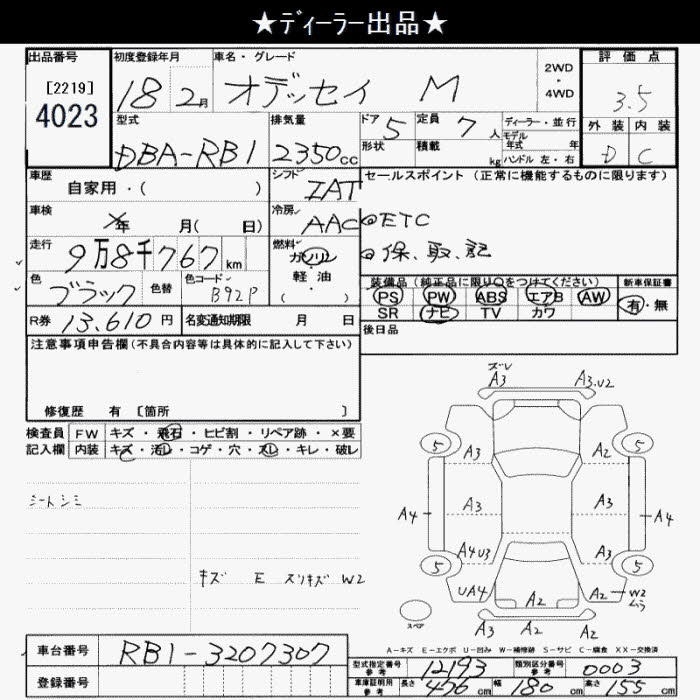 ★ディーラー出品★
出品番号 初度登録年月 車名・グレード 2WD ・ 4WD 評価点
[2219] 4023 18 2月 オデッセイ M 3.5
型式 排気量 ドア 5 定員 7人 ディーラー・並行 外装 内装
DBA-RB1 2350cc 形状 積載 kg モデル年式 年 ハンドル 左・右 D C
車歴 自家用・( ) シフト IAT セールスポイント (正常に機能するものに限ります)
車検 年 月( 日) 冷房 AAC ◎ETC
走行 9万8千767km 燃料 ガソリン ・ 軽・油 ( ) ◎保、取、記
色 ブラック 色替 色コード B92P 装備品 (純正品に限り○をつけてください) 新車保証書
PS PW ABS エアB AW 有・無
R券 13,610円 名変通知期限 月 日 SR ナビ TV カワ
注意事項申告欄(不具合内容等は具体的に記入して下さい) 後日品
修復歴 有 [箇所 ]
検査員 FW キズ・飛石・ヒビ割・リペア跡・×要
記入欄 内装 キズ・汚レ・コゲ・穴・スレ・キレ・破レ
シートシミ
キズ E スリキズ W2
ズレ
A3 A3.U2
5 5
A3 A2
A4 A3 A3 A4
A4U3 A3
5 5
UA4 A2 A2 W2 ムラ
スペア A2 A2
A-キズ E-エクボ U-凹み W-補修跡 S-サビ C-腐食 XX-交換済
車台番号 RB1-3207307
型式指定番号 参考 12193 類別区分番号 参考 0003
登録番号
車庫証明用 参考 長さ 476cm 幅 180cm 高さ 155cm